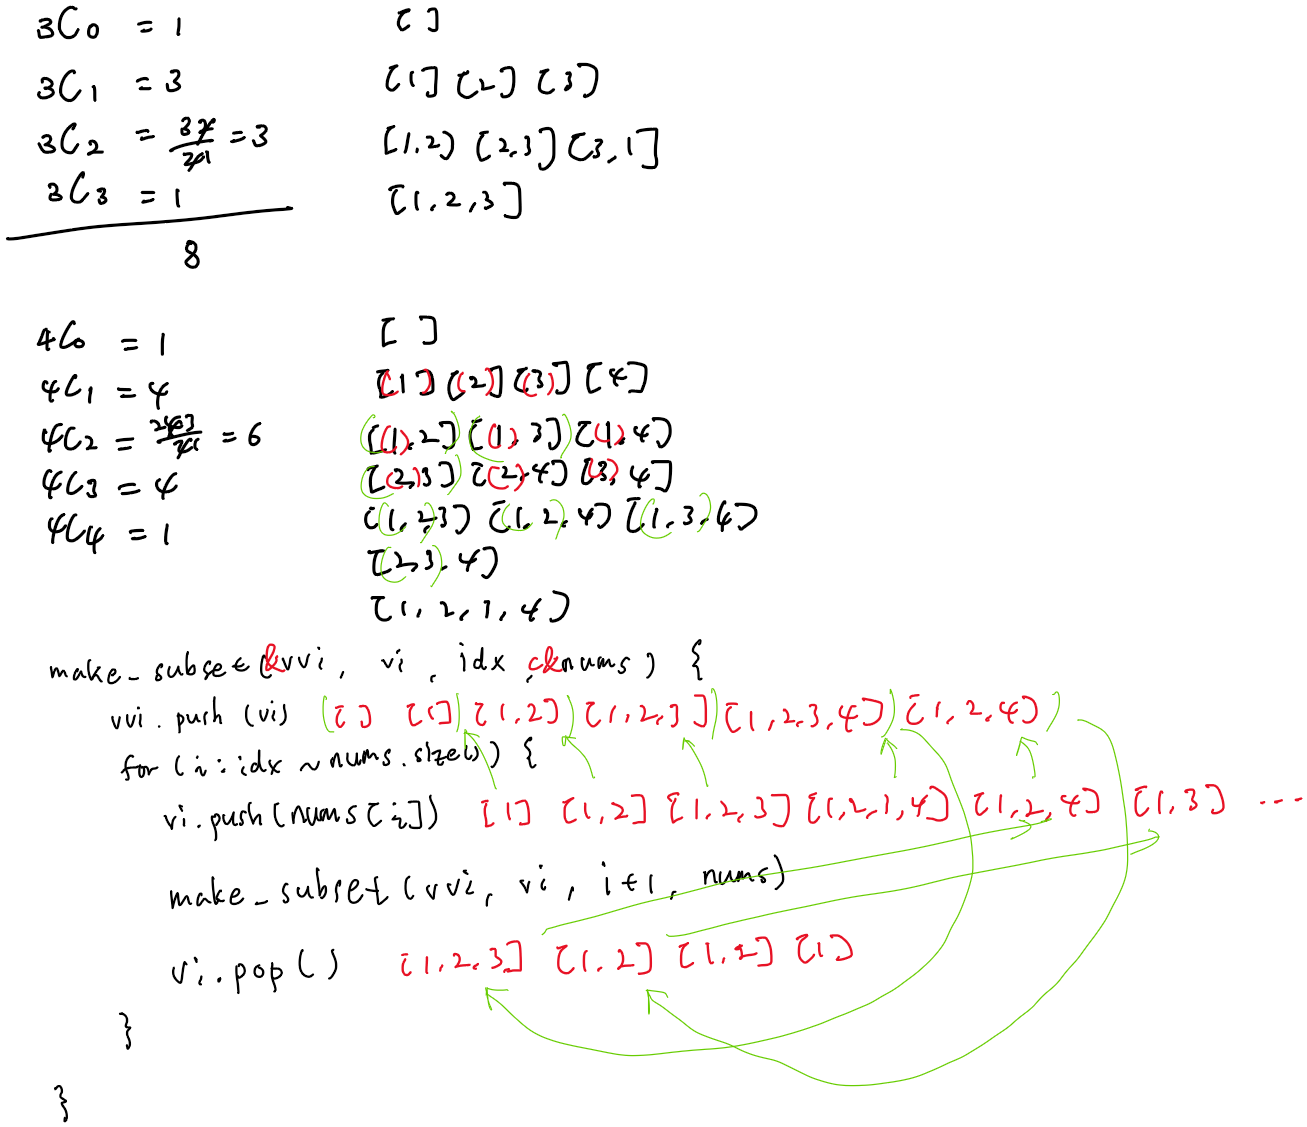 3C0 = 1 [ ]
3C1 = 3 [1] [2] [3]
3C2 = 32/21 = 3 [1,2] [2,3] [3,1]
3C3 = 1 [1,2,3]
8
4C0 = 1 [ ]
4C1 = 4 [1] [2] [3] [4]
4C2 = = 6 [1,2] [1,3] [1,4]
4C3 = 4 [2,3] [2,4] [3,4]
4C4 = 1 [1,2,3] [1,2,4] [1,3,4]
[2,3,4]
[1,2,3,4]
make_subset(&vvi, vi, idx, c&nums) {
vvi.push(vi) [] [1] [1,2] [1,2,3] [1,2,3,4] [1,2,4]
for (i: idx ~ nums.size()) {
vi.push(nums[i]) [1] [1,2] [1,2,3] [1,2,3,4] [1,2,4] [1,3] ...
make_subset(vvi, vi, i+1, nums)
vi.pop() [1,2,3] [1,2] [1,2] [1]
}
}